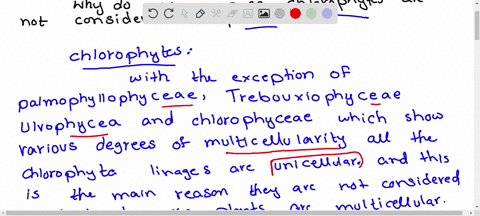 why do chlorophytes are
not conside
chlorophytes:
with the exception of
palmophyllophyceae, Trebouxiophyceae
Ulvophycea and chlorophyceae which show
various degrees of multicellularity all the
chlorophyta linages are unicellular. and this
is the main reason they are not considered
plants are multicellular.